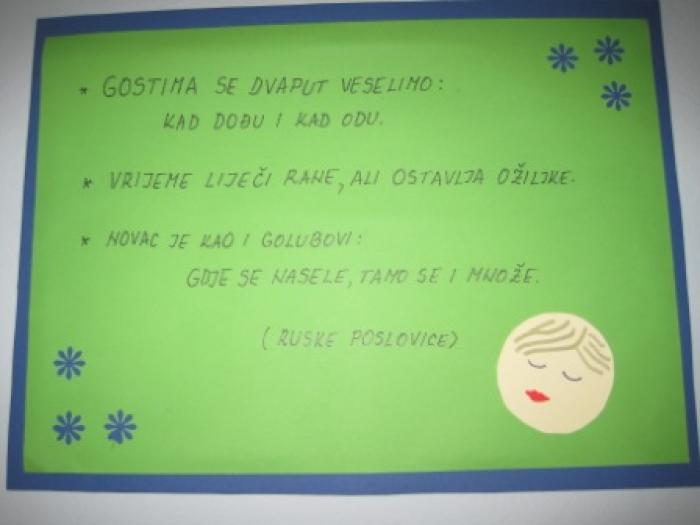 * GOSTIMA SE DVAPUT VESELIMO:
KAD DOĐU I KAD ODU.
* VRIJEME LIJEČI RANE, ALI OSTAVLJA OŽILJKE.
* NOVAC JE KAO I GOLUBOVI:
GDJE SE NASELE, TAMO SE I MNOŽE.
(RUSKE POSLOVICE)